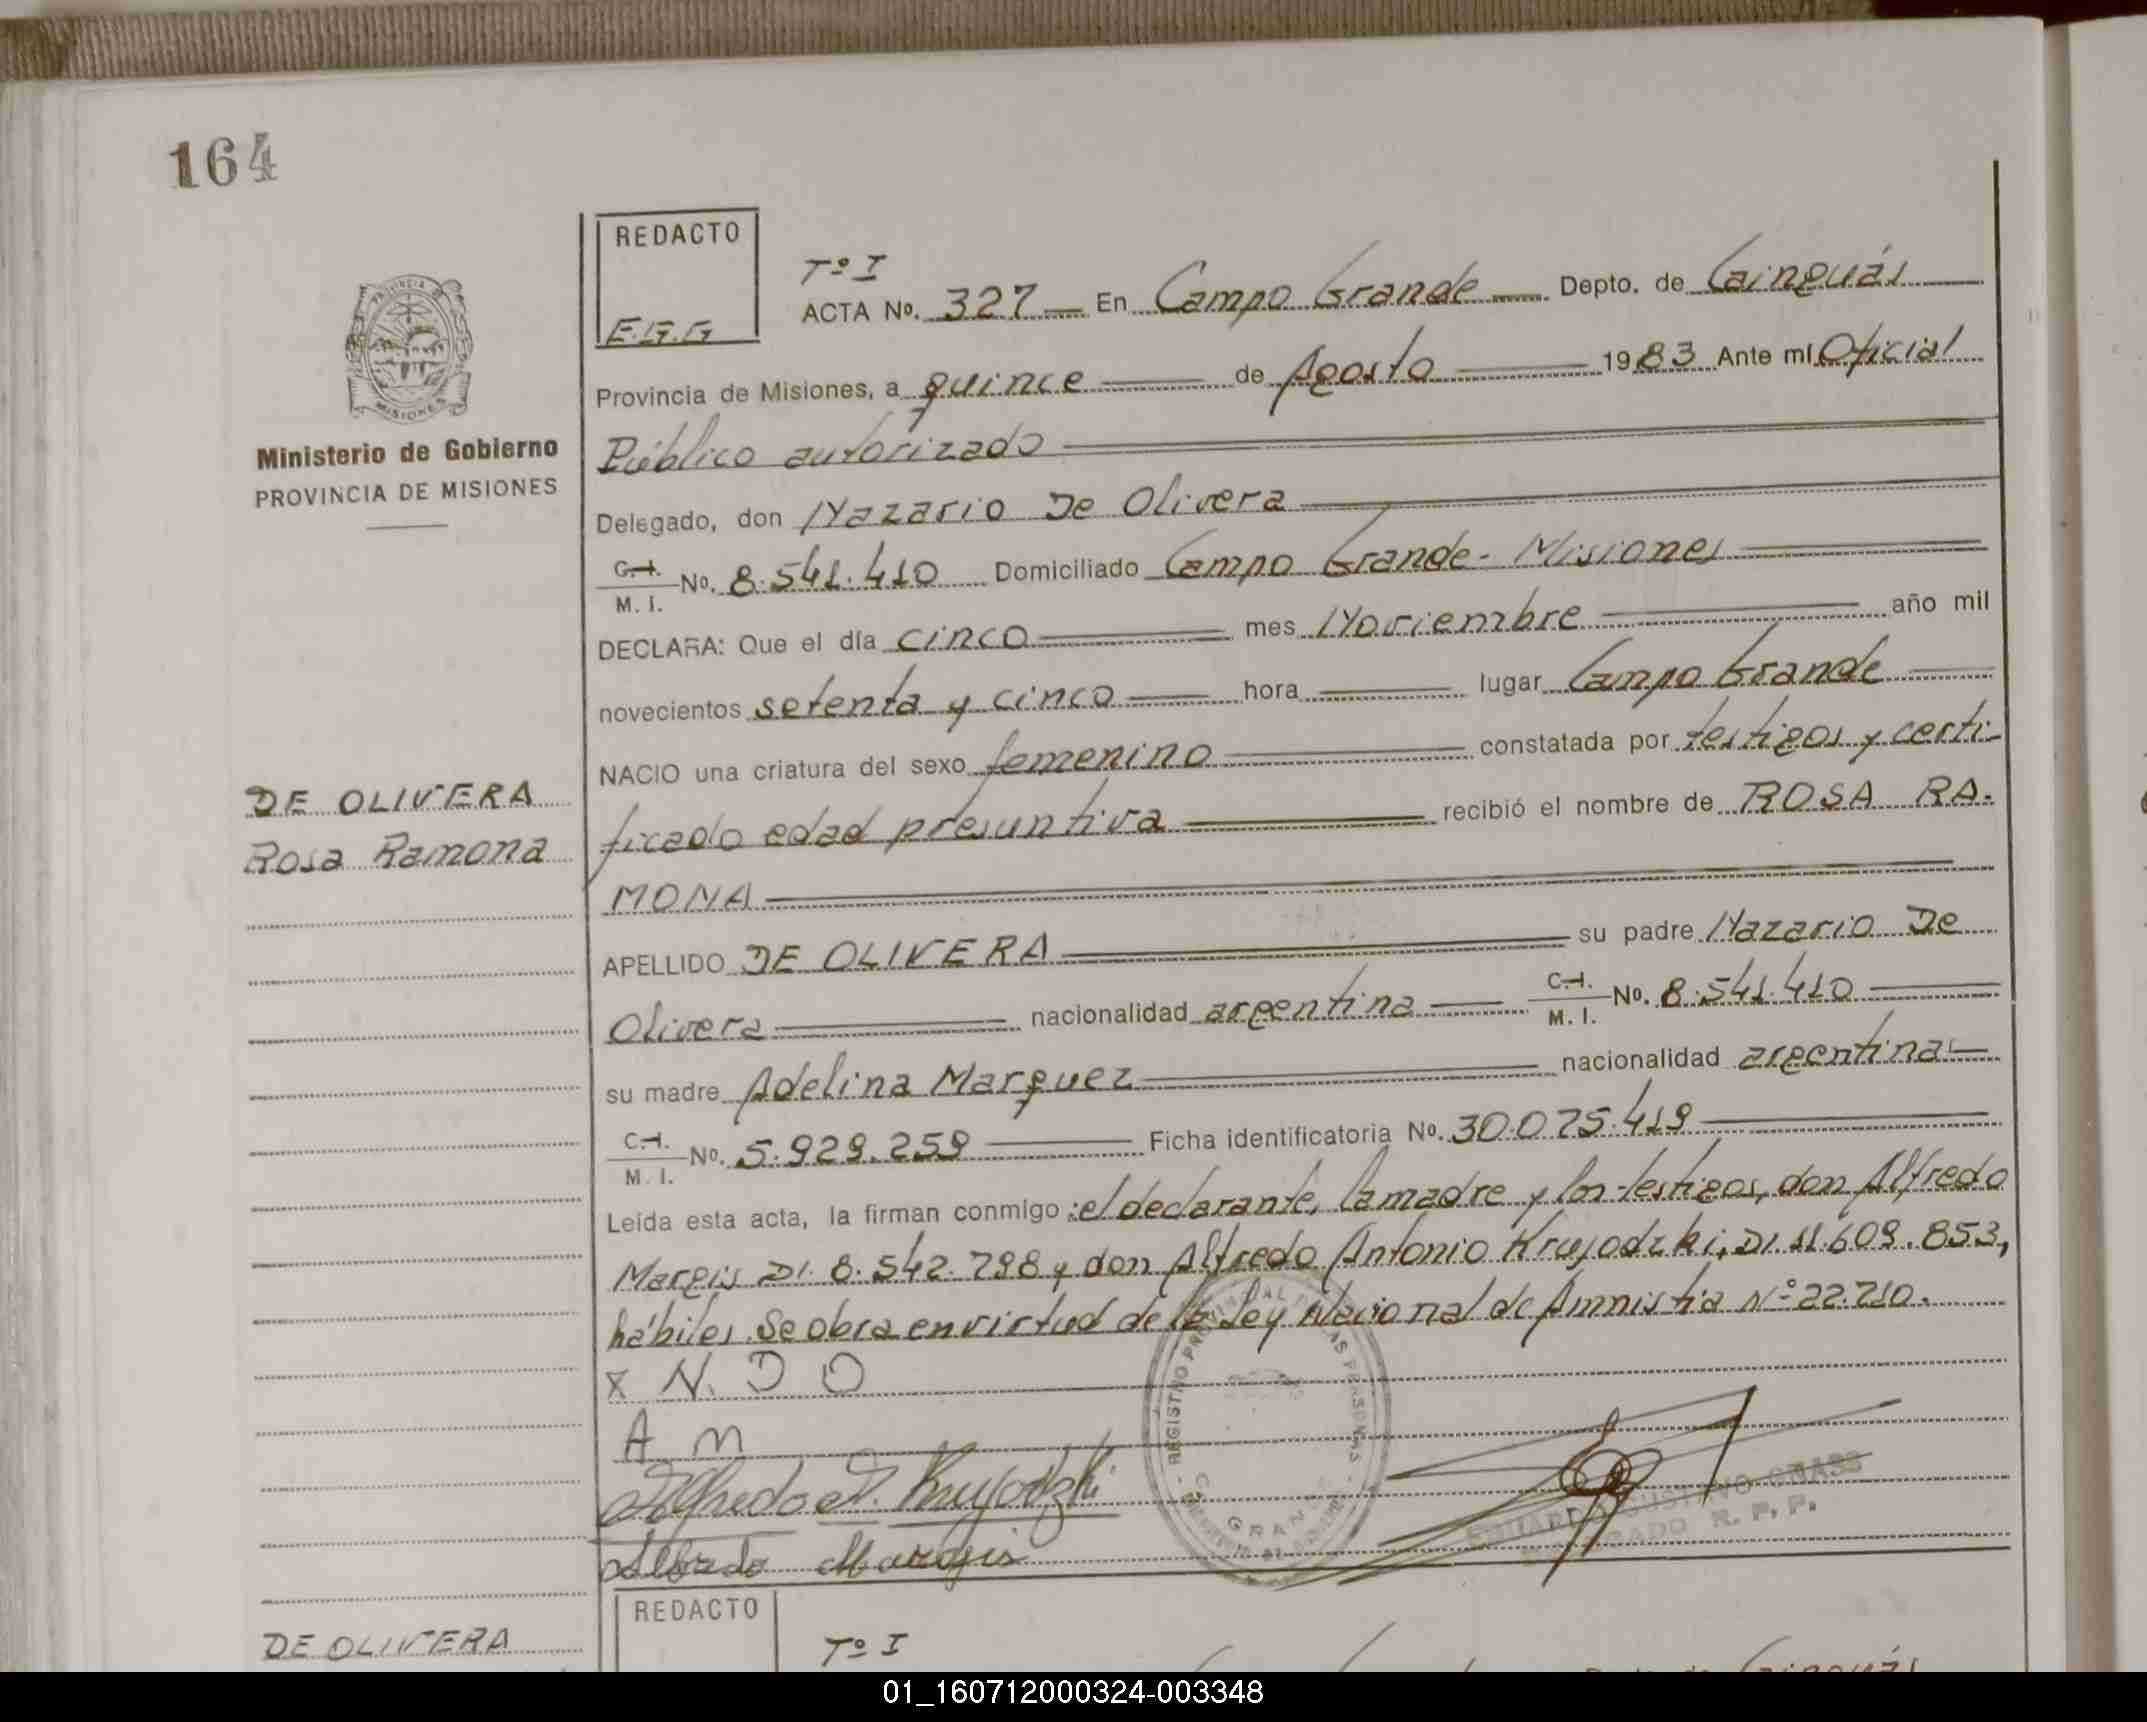 164
REDACTO
E.G.G
Tº I
ACTA Nº. 327 En Campo Grande Depto. de Cainguás
Provincia de Misiones, a quince de Agosto 1983 Ante mí Oficial
Público autorizado
Delegado, don Nazario De Olivera
C.I. M. I. Nº. 8.541.410 Domiciliado Campo Grande - Misiones
DECLARA: Que el día cinco mes Noviembre año mil
novecientos setenta y cinco hora lugar Campo Grande
NACIO una criatura del sexo femenino constatada por testigos y certi-
ficado edad presuntiva recibió el nombre de ROSA RA-
MONA
APELLIDO DE OLIVERA su padre Nazario De
Olivera nacionalidad argentina C.I. M. I. Nº. 8.541.410
su madre Adelina Marquez nacionalidad argentina
C.I. M. I. Nº. 5.929.259 Ficha identificatoria Nº. 30.075.419
Leída esta acta, la firman conmigo: el declarante, la madre y los testigos, don Alfredo
Margis DI. 8.542.798 y don Alfredo Antonio Krujodzki, DI. 11.609.853,
hábiles. Se obra en virtud de la Ley Nacional de Amnistia Nº 22.710.
x N. D O
A M
Alfredo A. Krujodzki
Alfredo Margis
PROVINCIA DE
MISIONES
Ministerio de Gobierno
PROVINCIA DE MISIONES
DE OLIVERA
Rosa Ramona
REGISTRO PROVINCIAL DE LAS PERSONAS
GRANDE
EDUARDO GUSTAVO GNASS
DELEGADO R. P. P.
REDACTO
Tº I
DE OLIVERA
01_160712000324-003348